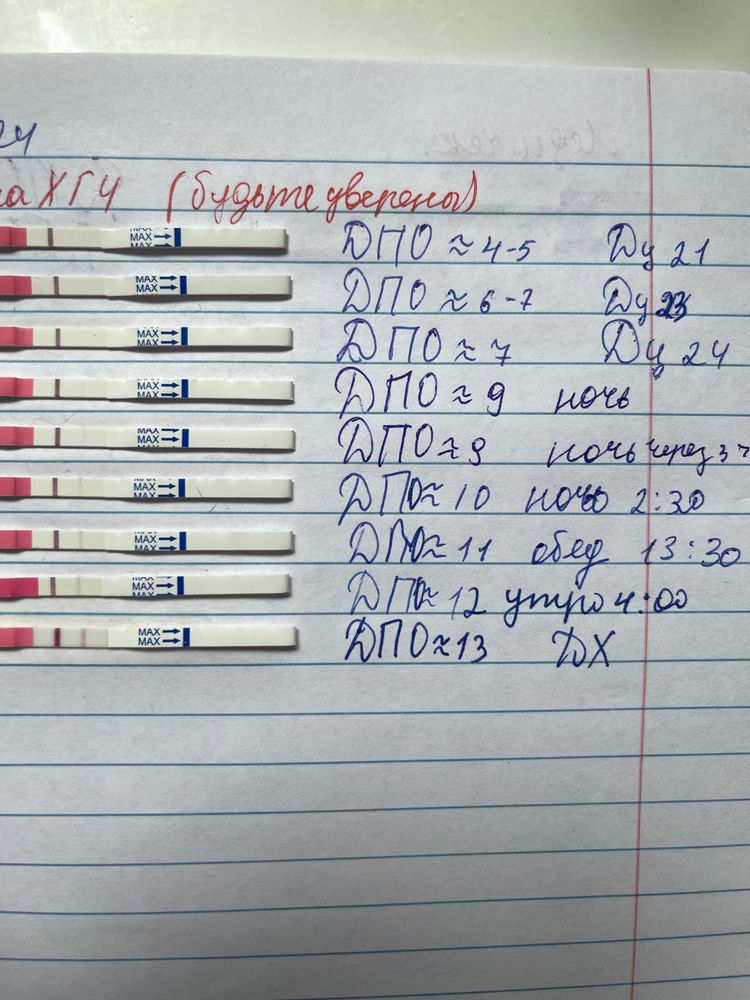 24
на ХГЧ (будьте уверены)
MAX MAX MAX ДПО ≈ 4-5 Дц 21
MAX MAX ДПО ≈ 6-7 Дц 23
MAX MAX ДПО ≈ 7 Дц 24
MAX MAX ДПО ≈ 9 ночь
MAX MAX ДПО ≈ 9 ночь через 3 ч
MAX MAX ДПО ≈ 10 ночь 2:30
MAX MAX ДПО ≈ 11 обед 13:30
MAX MAX MAX ДПО ≈ 12 утро 4:00
MAX MAX ДПО ≈ 13 ДХ